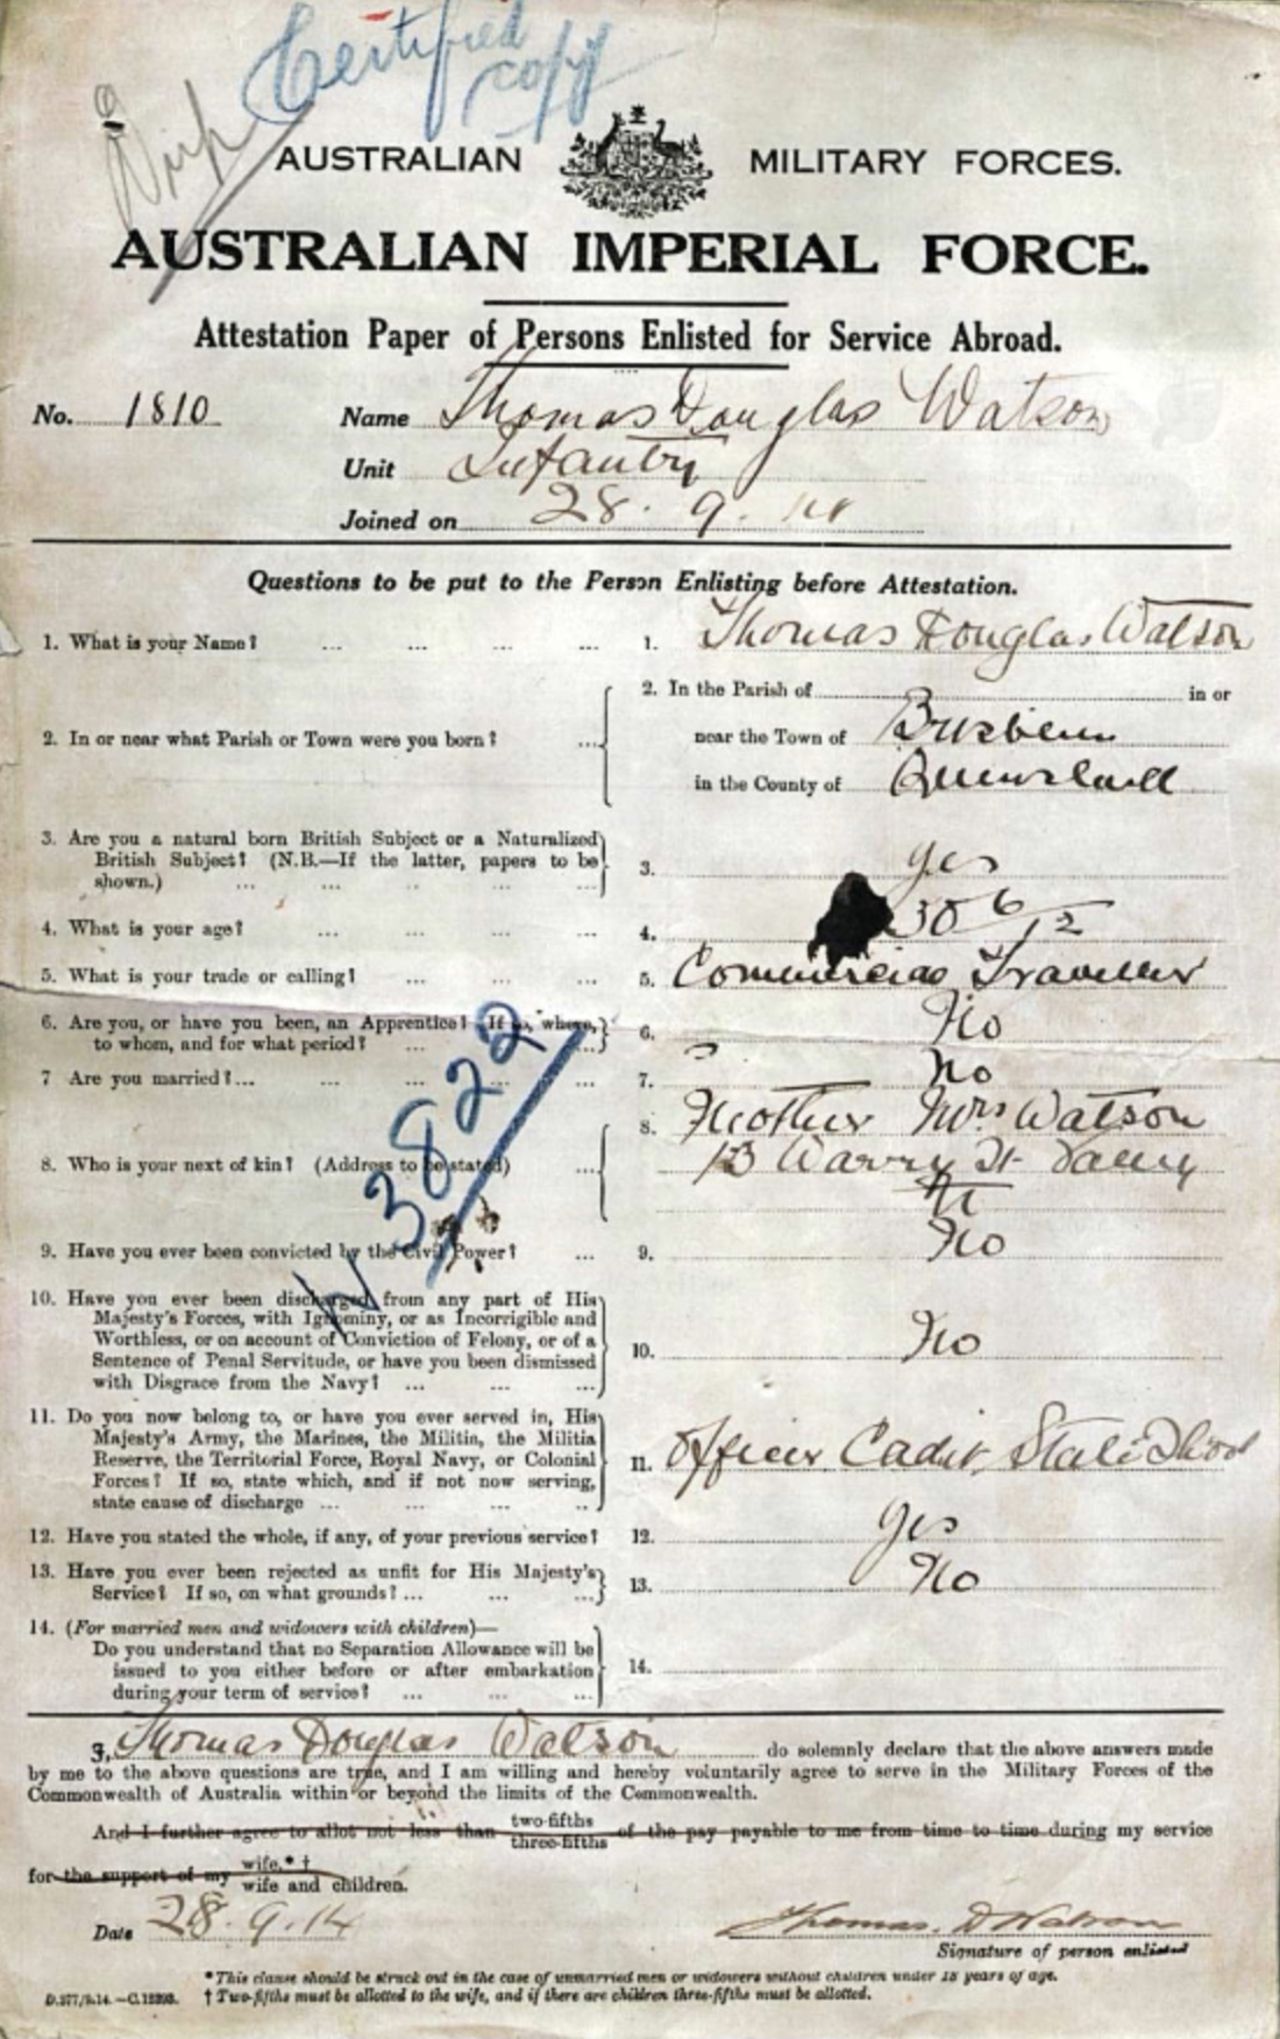 Certified
copy
AUSTRALIAN MILITARY FORCES.
AUSTRALIAN IMPERIAL FORCE.
Attestation Paper of Persons Enlisted for Service Abroad.
No. 1810 Name Thomas Douglas Watson
Unit Infantry
Joined on 28. 9. 14
Questions to be put to the Person Enlisting before Attestation.
1. What is your Name? ... ... ... ... 1. Thomas Douglas Watson
2. In the Parish of in or
2. In or near what Parish or Town were you born? ... near the Town of Brisbane
in the County of Queensland
3. Are you a natural born British Subject or a Naturalized
British Subject? (N.B.—If the latter, papers to be
shown.) ... ... ... ... ... 3. yes
4. What is your age? ... ... ... ... 4. 30 6/12
5. What is your trade or calling? ... ... ... 5. Commercial Traveller
6. Are you, or have you been, an Apprentice? If so, where,
to whom, and for what period? ... ... 6. No
7 Are you married?... ... ... ... ... 7. No
8. Mother Mrs Watson
8. Who is your next of kin? (Address to be stated) ... 13 Warry St Valley
N 3822
9. Have you ever been convicted by the Civil Power? ... 9. No
10. Have you ever been discharged from any part of His
Majesty's Forces, with Ignominy, or as Incorrigible and
Worthless, or on account of Conviction of Felony, or of a
Sentence of Penal Servitude, or have you been dismissed
with Disgrace from the Navy? ... ... ... 10. No
11. Do you now belong to, or have you ever served in, His
Majesty's Army, the Marines, the Militia, the Militia
Reserve, the Territorial Force, Royal Navy, or Colonial
Forces? If so, state which, and if not now serving,
state cause of discharge ... ... ... 11. Officer Cadet, State School
12. Have you stated the whole, if any, of your previous service? 12. yes
13. Have you ever been rejected as unfit for His Majesty's
Service? If so, on what grounds? ... ... ... 13. No
14. (For married men and widowers with children)—
Do you understand that no Separation Allowance will be
issued to you either before or after embarkation
during your term of service? ... ... ... 14.
I, Thomas Douglas Watson do solemnly declare that the above answers made
by me to the above questions are true, and I am willing and hereby voluntarily agree to serve in the Military Forces of the
Commonwealth of Australia within or beyond the limits of the Commonwealth.
And I further agree to allot not less than two-fifths three-fifths of the pay payable to me from time to time during my service
for the support of my wife.* † wife and children.
Date 28. 9. 14 Thomas. D Watson
Signature of person enlisted
*This clause should be struck out in the case of unmarried men or widowers without children under 18 years of age.
† Two-fifths must be allotted to the wife, and if there are children three-fifths must be allotted.